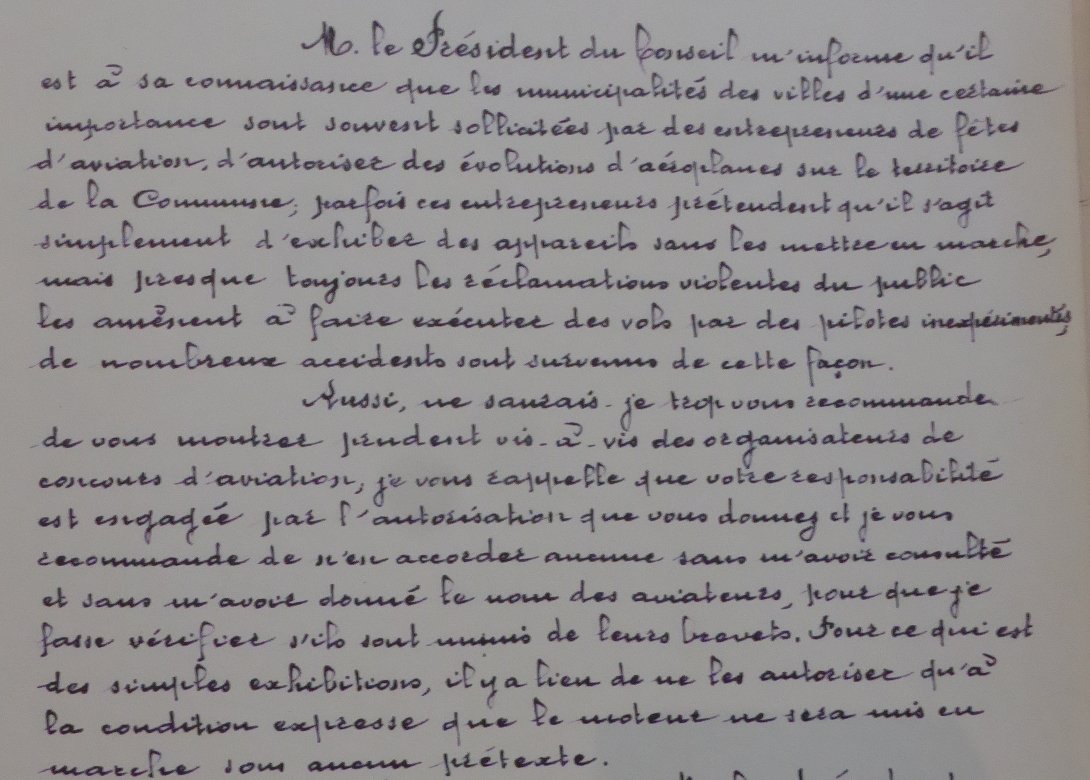 M. le Président du Conseil m'informe qu'il
est à sa connaissance que les municipalités des villes d'une certaine
importance sont souvent sollicitées par des entrepreneurs de fêtes
d'aviation, d'autoriser des évolutions d'aéroplanes sur le territoire
de la Commune; parfois ces entrepreneurs prétendent qu'il s'agit
simplement d'exhiber des appareils sans les mettre en marche,
mais presque toujours les réclamations violentes du public
les amènent à faire exécuter des vols par des pilotes inexpérimentés,
de nombreux accidents sont survenus de cette façon.
Aussi, ne saurais-je trop vous recommande
de vous montrer prudent vis-à-vis des organisateurs de
concours d'aviation, je vous rappelle que votre responsabilité
est engagée par l'autorisation que vous donnez et je vous
recommande de n'en accorder aucune sans m'avoir consulté
et sans m'avoir donné le nom des aviateurs, pour que je
fasse vérifier s'ils sont munis de leurs brevets. Pour ce qui est
des simples exhibitions, il y a lieu de ne les autoriser qu'à
la condition expresse que le moteur ne sera mis en
marche sous aucun prétexte.